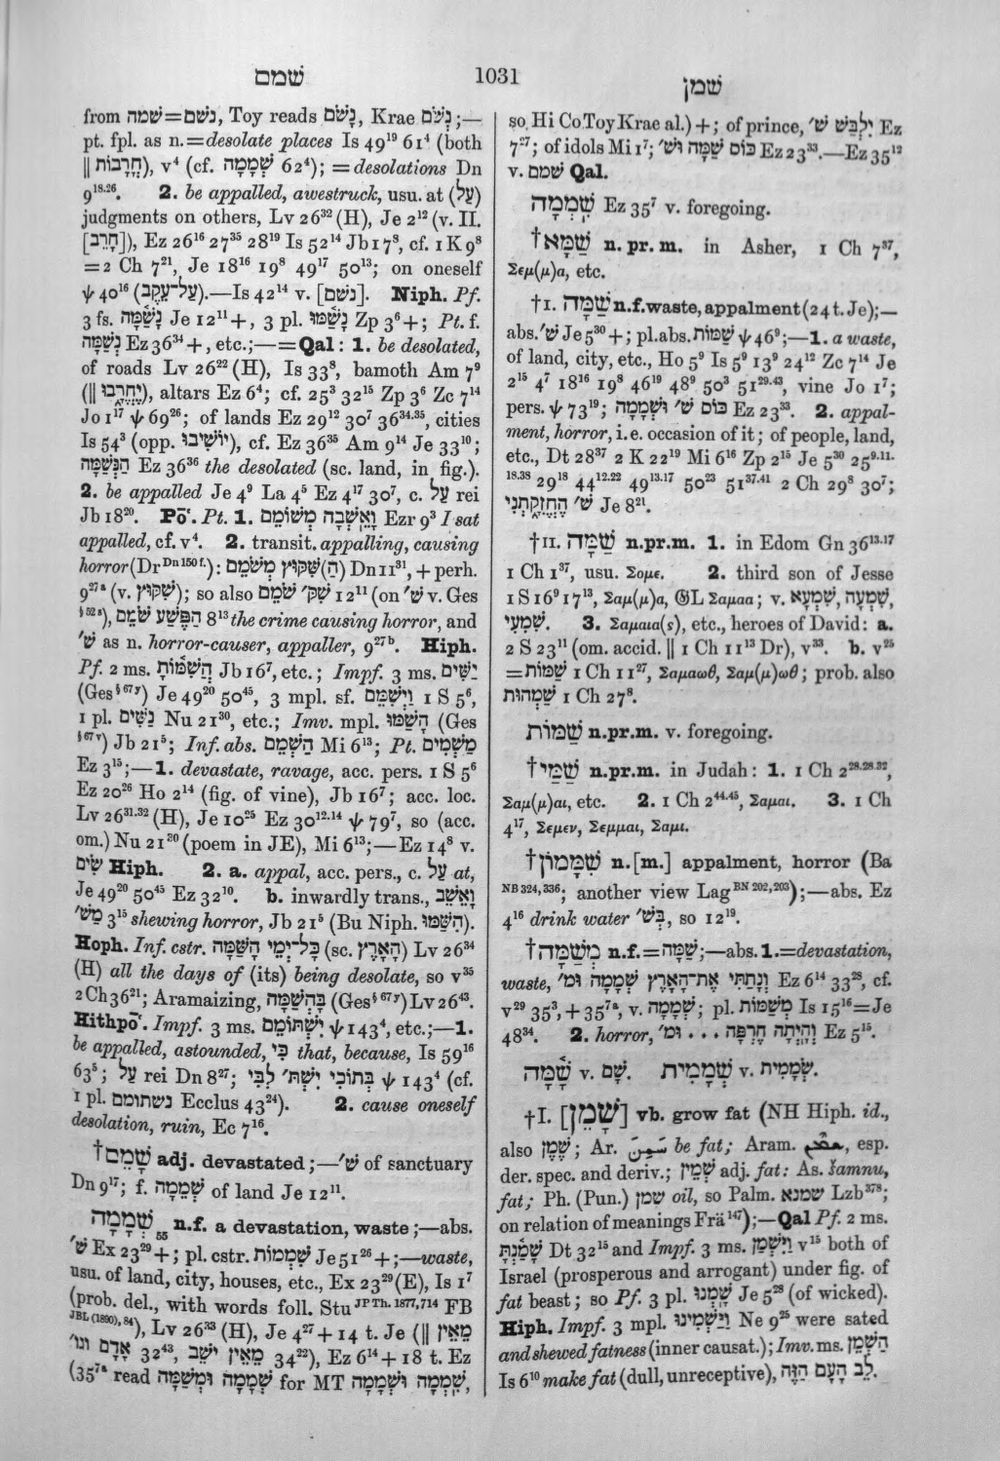 שׁמם
1031
שׁמן
from נשׁם=שׁמה, Toy reads נָשֹׁם, Krae נָשֹׁם;—
pt. fpl. as n.=desolate places Is 49¹⁹ 61⁴ (both
‖ חֳרָבוֹת), v⁴ (cf. שְׁמָמָה 62⁴); =desolations Dn
9¹⁸·²⁶. 2. be appalled, awestruck, usu. at (עַל)
judgments on others, Lv 26³² (H), Je 2¹² (v. II.
[חָרֵב]), Ez 26¹⁶ 27³⁵ 28¹⁹ Is 52¹⁴ Jb 17⁸, cf. 1 K 9⁸
=2 Ch 7²¹, Je 18¹⁶ 19⁸ 49¹⁷ 50¹³; on oneself
ψ 40¹⁶ (עַל־עֵקֶב).—Is 42¹⁴ v. [נשׁם]. Niph. Pf.
3 fs. נָשַׁ֫מָּה Je 12¹¹+, 3 pl. נָשַׁ֫מּוּ Zp 3⁶+; Pt. f.
נְשַׁמָּה Ez 36³⁴+, etc.;—=Qal: 1. be desolated,
of roads Lv 26²² (H), Is 33⁸, bamoth Am 7⁹
(‖ יֶחֱרָבוּ), altars Ez 6⁴; cf. 25³ 32¹⁵ Zp 3⁶ Zc 7¹⁴
Jo 1¹⁷ ψ 69²⁶; of lands Ez 29¹² 30⁷ 36³⁴·³⁵, cities
Is 54³ (opp. יוֹשִׁיבוּ), cf. Ez 36³⁵ Am 9¹⁴ Je 33¹⁰;
הַנְּשַׁמָּה Ez 36³⁶ the desolated (sc. land, in fig.).
2. be appalled Je 4⁹ La 4⁵ Ez 4¹⁷ 30⁷, c. עַל rei
Jb 18²⁰. Pō‘. Pt. 1. וָאֵשְׁבָה מְשׁוֹמֵם Ezr 9³ I sat
appalled, cf. v⁴. 2. transit. appalling, causing
horror (Dr Dn 150 f.): (הַ)שִּׁקּוּץ מְשֹׁמֵם Dn 11³¹, + perh.
9²⁷ᵃ (v. שִׁקּוּץ); so also שִׁקּ׳ שֹׁמֵם 12¹¹ (on שׁ׳ v. Ges
§ 52 s), הַפֶּשַׁע שֹׁמֵם 8¹³ the crime causing horror, and
שׁ׳ as n. horror-causer, appaller, 9²⁷ᵇ. Hiph.
Pf. 2 ms. הֲשִׁמּוֹתָ Jb 16⁷, etc.; Impf. 3 ms. יַשִּׁים
(Ges § 67 y) Je 49²⁰ 50⁴⁵, 3 mpl. sf. וַיְשִׁמֵּם 1 S 5⁶,
1 pl. נַשִּׁים Nu 21³⁰, etc.; Imv. mpl. הָשַׁמּוּ (Ges
§ 67 v) Jb 21⁵; Inf. abs. הַשְׁמֵם Mi 6¹³; Pt. מַשְׁמִים
Ez 3¹⁵;—1. devastate, ravage, acc. pers. 1 S 5⁶
Ez 20²⁶ Ho 2¹⁴ (fig. of vine), Jb 16⁷; acc. loc.
Lv 26³¹·³² (H), Je 10²⁵ Ez 30¹²·¹⁴ ψ 79⁷, so (acc.
om.) Nu 21³⁰ (poem in JE), Mi 6¹³;—Ez 14⁸ v.
שִׂים Hiph. 2. a. appal, acc. pers., c. עַל at,
Je 49²⁰ 50⁴⁵ Ez 32¹⁰. b. inwardly trans., וָאֵשֵׁב
מַשׁ׳ 3¹⁵ shewing horror, Jb 21⁵ (Bu Niph. הִשַּׁמּוּ).
Hoph. Inf. cstr. כָּל־יְמֵי הָשַּׁמָּה (sc. הָאָרֶץ) Lv 26³⁴
(H) all the days of (its) being desolate, so v³⁵
2 Ch 36²¹; Aramaizing, בָּהְשַׁמָּה (Ges § 67 y) Lv 26⁴³.
Hithpō‘. Impf. 3 ms. יִשְׁתּוֹמֵם ψ 143⁴, etc.;—1.
be appalled, astounded, כִּי that, because, Is 59¹⁶
63⁵; עַל rei Dn 8²⁷; בְּתוֹכִי יִשְׁתּ׳ לִבִּי ψ 143⁴ (cf.
1 pl. נשתומם Ecclus 43²⁴). 2. cause oneself
desolation, ruin, Ec 7¹⁶.
†שָׁמֵם adj. devastated;—שׁ׳ of sanctuary
Dn 9¹⁷; f. שְׁמֵמָה of land Je 12¹¹.
שְׁמָמָה₅₅ n.f. a devastation, waste;—abs.
שׁ׳ Ex 23²⁹+; pl. cstr. שִׁמְמוֹת Je 51²⁶+;—waste,
usu. of land, city, houses, etc., Ex 23²⁹ (E), Is 1⁷
(prob. del., with words foll. Stu JP Th. 1877, 714 FB
JBL (1890), 84), Lv 26³³ (H), Je 4²⁷ + 14 t. Je (‖ מֵאֵין
אָדָם וגו׳ 32⁴³, מֵאֵין ישֵׁב 34²²), Ez 6¹⁴ + 18 t. Ez
(35⁷ᵃ read שְׁמָמָה וּמְשַׁמָּה for MT שִׁמְמָה וּשְׁמָמָה,
so Hi Co Toy Krae al.) +; of prince, יִלְבַּשׁ שׁ׳ Ez
7²⁷; of idols Mi 1⁷; כּוֹס שַׁמָּה וּשׁ׳ Ez 23³³.—Ez 35¹²
v. שׁמם Qal.
שִׁמְמָה Ez 35⁷ v. foregoing.
†שַׁמָּא n. pr. m. in Asher, 1 Ch 7³⁷,
Σεμ(μ)α, etc.
†I. שַׁמָּה n.f. waste, appalment (24 t. Je);—
abs. שׁ׳ Je 5³⁰+; pl. abs. שַׁמּוֹת ψ 46⁹;—1. a waste,
of land, city, etc., Ho 5⁹ Is 5⁹ 13⁹ 24¹² Zc 7¹⁴ Je
2¹⁵ 4⁷ 18¹⁶ 19⁸ 46¹⁹ 48⁹ 50³ 51²⁹·⁴³, vine Jo 1⁷;
pers. ψ 73¹⁹; כּוֹס שׁ׳ וּשְׁמָמָה Ez 23³³. 2. appal-
ment, horror, i.e. occasion of it; of people, land,
etc., Dt 28³⁷ 2 K 22¹⁹ Mi 6¹⁶ Zp 2¹⁵ Je 5³⁰ 25⁹·¹¹·
¹⁸·³⁸ 29¹⁸ 44¹²·²² 49¹³·¹⁷ 50²³ 51³⁷·⁴¹ 2 Ch 29⁸ 30⁷;
שׁ׳ הֶחֱזִקָתְנִי Je 8²¹.
†II. שַׁמָּה n.pr.m. 1. in Edom Gn 36¹³·¹⁷
1 Ch 1³⁷, usu. Σομε. 2. third son of Jesse
1 S 16⁹ 17¹³, Σαμ(μ)α, 𝔊L Σαμαα; v. שִׁמְעָה, שִׁמְעָא,
שִׁמְעִי. 3. Σαμαια(ς), etc., heroes of David: a.
2 S 23¹¹ (om. accid. ‖ 1 Ch 11¹³ Dr), v³³. b. v²⁵
=שַׁמּוֹת 1 Ch 11²⁷, Σαμαωθ, Σαμ(μ)ωθ; prob. also
שַׁמְהוּת 1 Ch 27⁸.
שַׁמּוֹת n.pr.m. v. foregoing.
†שַׁמַּי n.pr.m. in Judah: 1. 1 Ch 2²⁸·²⁸·³²,
Σαμ(μ)αι, etc. 2. 1 Ch 2⁴⁴·⁴⁵, Σαμαι. 3. 1 Ch
4¹⁷, Σεμεν, Σεμμαι, Σαμι.
†שִׁמָּמוֹן n. [m.] appalment, horror (Ba
NB 324, 336; another view Lag BN 202, 203);—abs. Ez
4¹⁶ drink water בְּשׁ׳, so 12¹⁹.
†מְשַׁמָּה n.f.=שַׁמָּה;—abs. 1.=devastation,
waste, וְנָתַתִּי אֶת־הָאָרֶץ שְׁמָמָה וּמ׳ Ez 6¹⁴ 33²⁸, cf.
v²⁹ 35³, + 35⁷ᵃ, v. שְׁמָמָה; pl. מְשַׁמּוֹת Is 15¹⁶=Je
48³⁴. 2. horror, וְהָיְתָה חֶרְפָּה . . . וּמ׳ Ez 5¹⁵.
שָׁ֫מָּה v. שָׁם. שְׁמָמִית v. שְׂמָמִית.
†I. [שָׁמֵן] vb. grow fat (NH Hiph. id.,
also שֶׁמֶן; Ar. سَمِنَ be fat; Aram. , esp.
der. spec. and deriv.; שָׁמֵין adj. fat: As. šamnu,
fat; Ph. (Pun.) שמן oil, so Palm. שמנא Lzb³⁷⁸;
on relation of meanings Frä¹⁴⁷);—Qal Pf. 2 ms.
שָׁמַ֫נְתָּ Dt 32¹⁵ and Impf. 3 ms. וַיִּשְׁמַן v¹⁵ both of
Israel (prosperous and arrogant) under fig. of
fat beast; so Pf. 3 pl. שָׁמְנוּ Je 5²⁸ (of wicked).
Hiph. Impf. 3 mpl. וַיַּשְׁמִינוּ Ne 9²⁵ were sated
and shewed fatness (inner causat.); Imv. ms. הַשְׁמֵן
Is 6¹⁰ make fat (dull, unreceptive), לֵב הָעָם הַזֶּה.